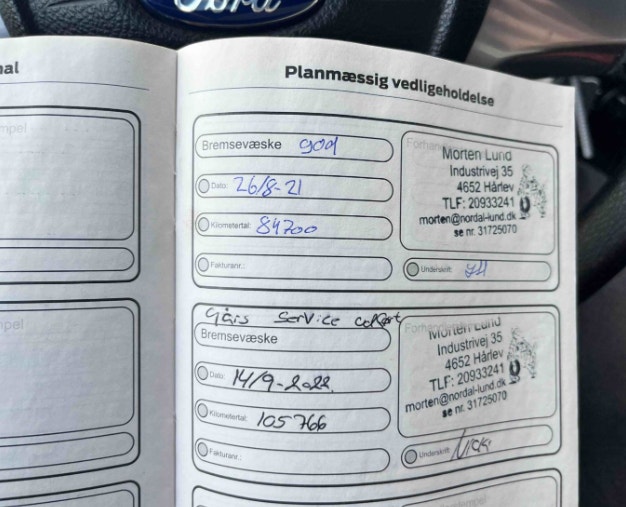 Ford
Planmæssig vedligeholdelse
Bremsevæske god
Dato: 26/8-21
Kilometertal: 84700
Fakturanr.:
Morten Lund
Industrivej 35
4652 Hårlev
TLF: 20933241
morten@nordal-lund.dk
se nr. 31725070
Underskrift:
service
Bremsevæske
Dato: 14/9-2022
Kilometertal: 105766
Fakturanr.:
Morten Lund
Industrivej 35
4652 Hårlev
TLF: 20933241
morten@nordal-lund.dk
se nr. 31725070
Underskrift: Nicki